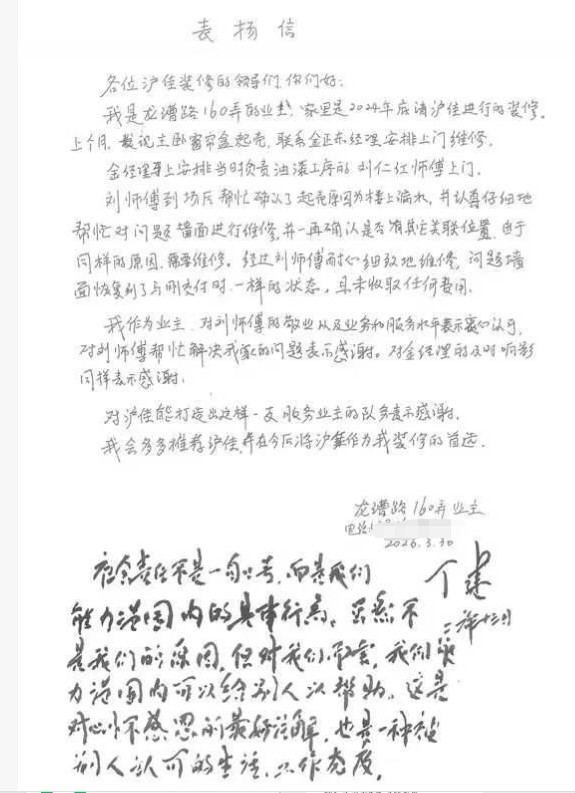 表扬信
各位沪佳装修的领导们,你们好:
我是龙漕路160弄的业主,家里是2024年底请沪佳进行的装修。
上个月,发现主卧窗帘盒起壳,联系金正东经理安排上门维修。
金经理马上安排当时负责油漆工序的刘仁红师傅上门。
刘师傅到场后帮忙确认了起壳原因为楼上漏水,并认真仔细地
帮忙对问题墙面进行维修,并一再确认是否有其它关联位置,由于
同样的原因,需要维修。经过刘师傅耐心细致地维修,问题墙
面恢复到了与刚交付时一样的状态,且未收取任何费用。
我作为业主,对刘师傅的敬业以及业务和服务水平表示衷心认可,
对刘师傅帮忙解决我家的问题表示感谢。对金经理的及时响应
同样表示感谢!
对沪佳能打造出这样一支服务业主的队伍表示感谢。
我会多多推荐沪佳,并在今后将沪佳作为我装修的首选。
龙漕路160弄业主
电话:
2026.3.30
社会责任不是一句口号,而是我们
能力范围内的具体行为。虽然不
是我们的原因,但对我们,我们
力范围内可以给别人以帮助。这是
对感恩的最好注解,也是一种被
别人认可的生活、工作态度。
丁建